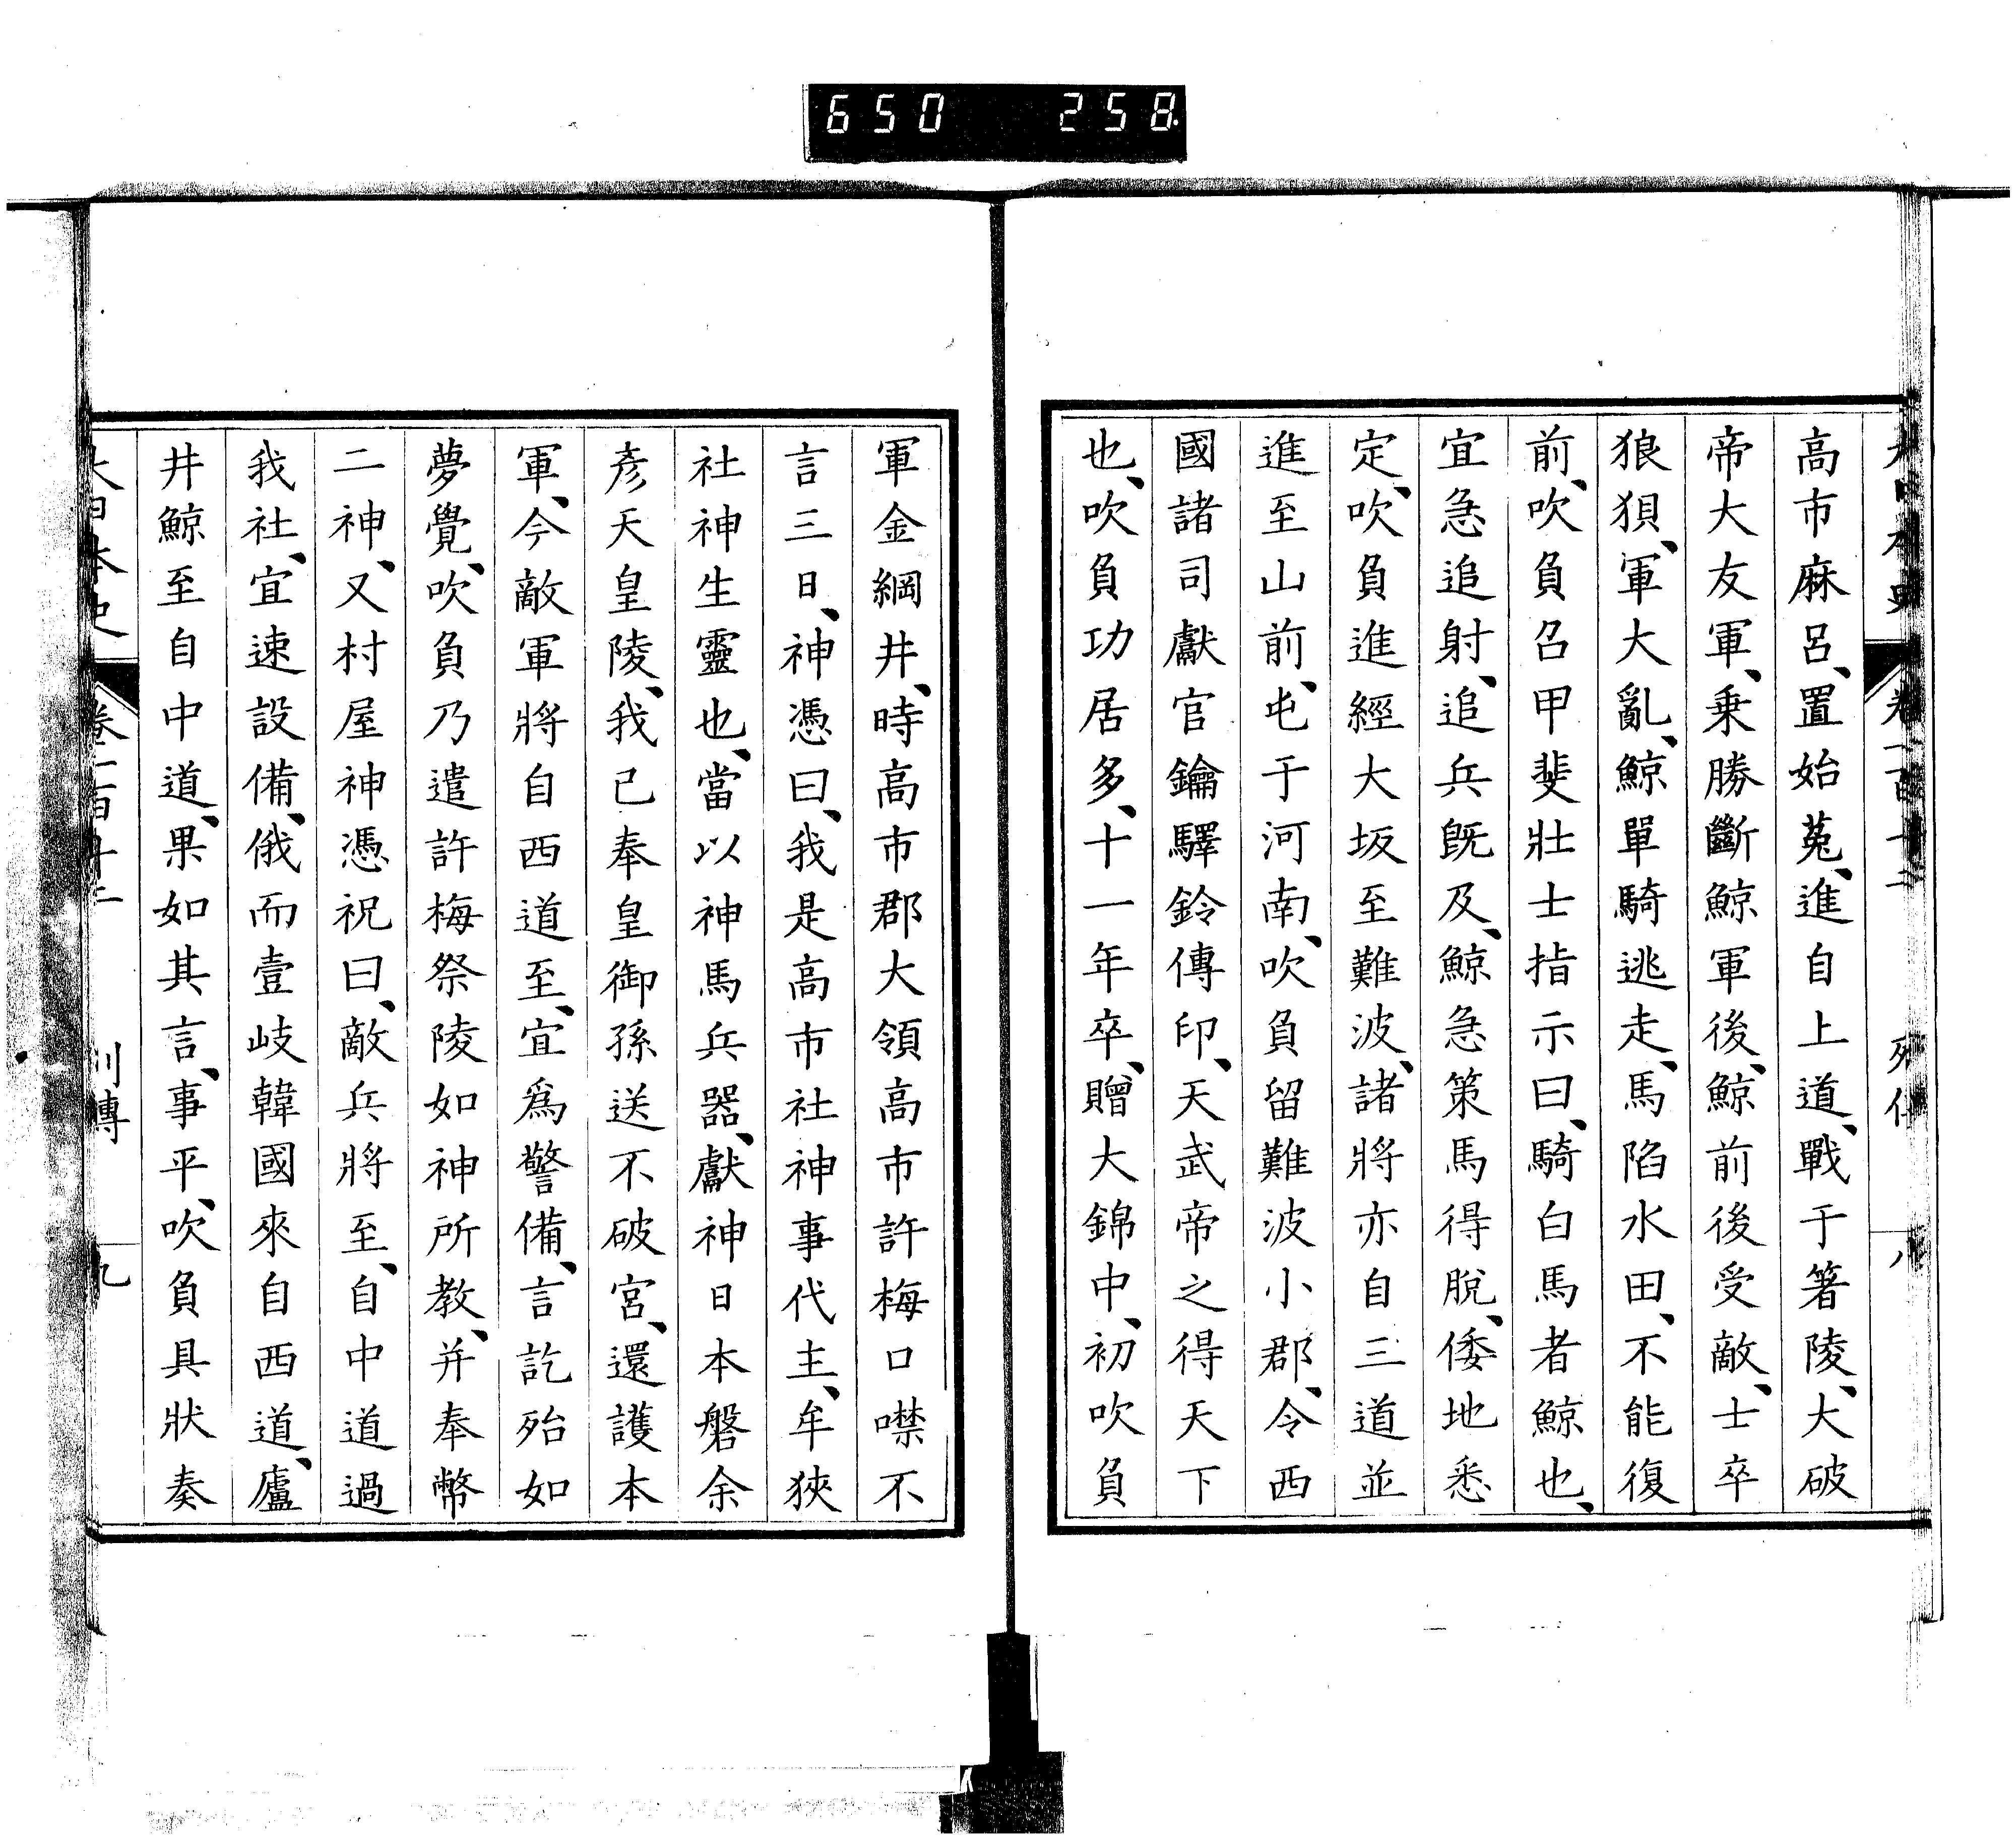 650 258
大日本史 卷一百十二 列傳 八
高市麻呂、置始菟、進自上道、戰于箸陵、大破
帝大友軍、乗勝斷鯨軍後、鯨前後受敵、士卒
狼狽、軍大亂、鯨單騎逃走、馬陷水田、不能復
前、吹負召甲斐壯士指示曰、騎白馬者鯨也、
宜急追射、追兵既及、鯨急策馬得脫、倭地悉
定、吹負進經大坂至難波、諸將亦自三道並
進至山前、屯于河南、吹負留難波小郡、令西
國諸司獻官鑰驛鈴傳印、天武帝之得天下
也、吹負功居多、十一年卒、贈大錦中、初吹負
軍金綱井、時高市郡大領高市許梅口噤不
言三日、神憑曰、我是高市社神事代主、牟狹
社神生靈也、當以神馬兵器、獻神日本磐余
彥天皇陵、我已奉皇御孫送不破宮、還護本
軍、今敵軍將自西道至、宜爲警備、言訖殆如
夢覺、吹負乃遣許梅祭陵如神所教、并奉幣
二神、又村屋神憑祝曰、敵兵將至、自中道過
我社、宜速設備、俄而壹岐韓國來自西道、廬
井鯨至自中道、果如其言、事平、吹負具狀奏
大日本史 卷一百十二 列傳 九